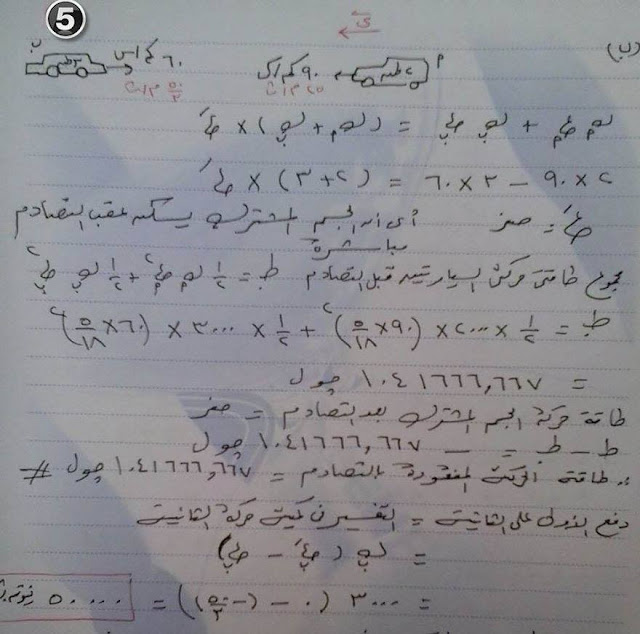 5
(ب)
ى
ب ٣ طن ٦٠ كم/س
٩٠ كم/س ٢ طن م
٥٠/٣ م/ث
٢٥ م/ث
لهم عم + لهب عب = (لهم + لهب) × عَ
٢ × ٩٠ − ٣ × ٦٠ = (٢+٣) × عَ
عَ = صفر أى أن الجسم المشترك يسكن عقب التصادم
مباشرة
مجموع طاقتى حركة السيارتين قبل التصادم ط = ١/٢ لهم عم٢ + ١/٢ لهب عب٢
ط = ١/٢ × ٢٠٠٠ × (٩٠ × ٥/١٨)٢ + ١/٢ × ٣٠٠٠ × (٦٠ × ٥/١٨)٢
= ١٠٤١٦٦٦,٦٦٧ جول
طاقة حركة الجسم المشترك بعد التصادم = صفر
ط − ط. = − ١٠٤١٦٦٦,٦٦٧ جول
∴ طاقة الحركة المفقودة بالتصادم = ١٠٤١٦٦٦,٦٦٧ جول #
دفع الأولى على الثانية = التغير فى كمية حركة الثانية
= لهب (عَب − عب)
= ٣٠٠٠ (٠ − (−٥٠/٣)) = ٥٠٠٠٠ نيوتن.ث